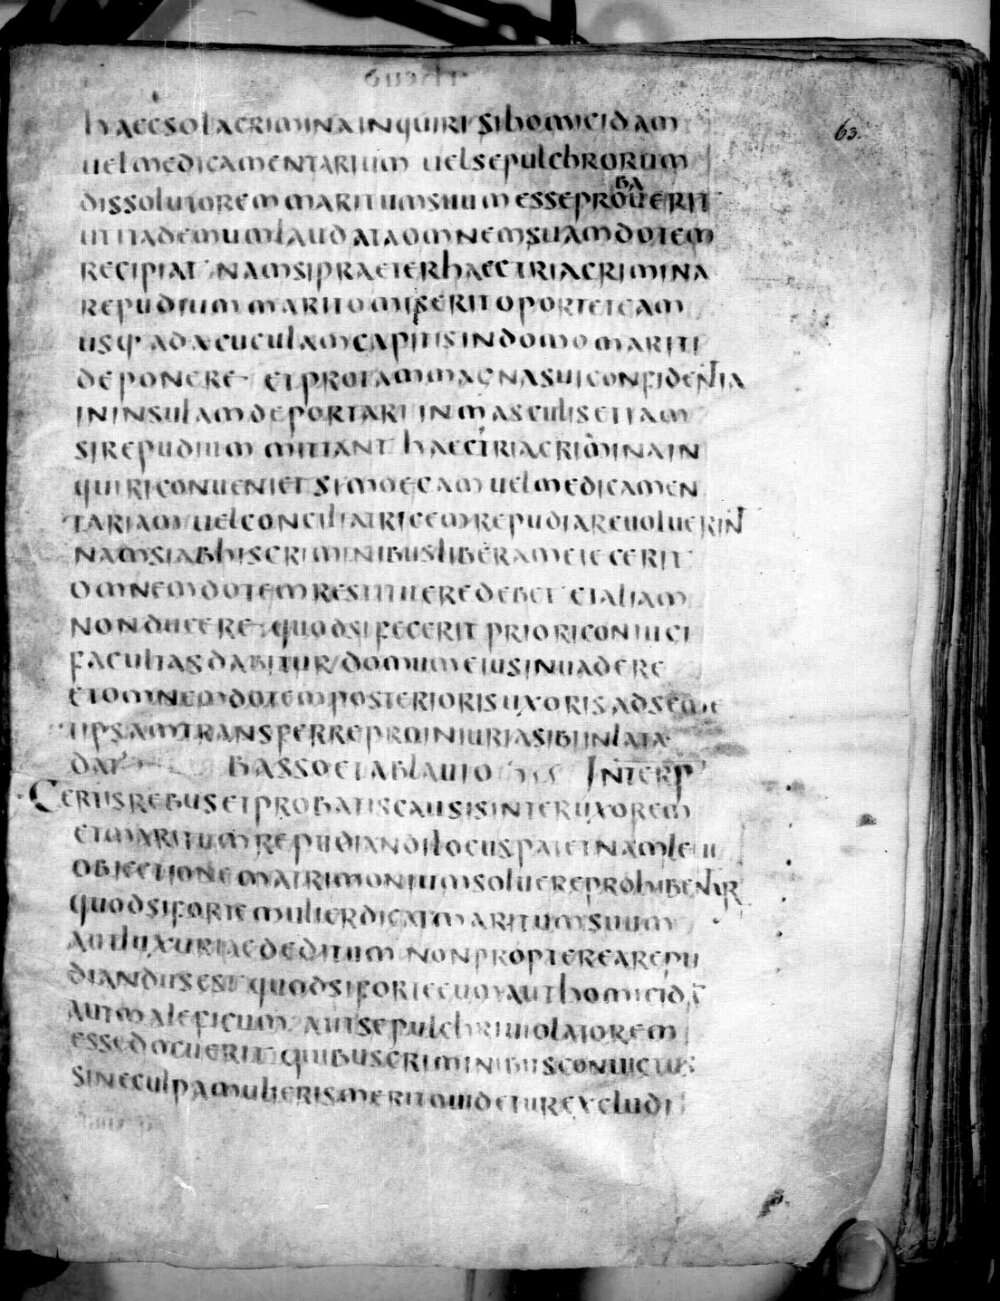 63.
haec sola crimina inquiri si homicidam
uel medicamentarium uel sepulchrorum
dissolutorem maritum suum esse probauerit
ut ita demum laudata omnem suam dotem
recipiat nam si praeter haec tria crimina
repudium marito miserit oportet eam
usq· ad acuculam capitis in domo mariti
deponere et pro tam magna sui confidentia
in insulam deportari in masculis etiam
si repudium mittant haec tria crimina in
quiri conueniet si moecam uel medicamen
tariam uel conciliatricem repudiare uoluerint
nam si ab his criminibus liberam eiecerit
omnem dotem restituere debet et aliam
non ducere quod si fecerit priori coniugi
facultas dabitur domum eius inuadere
et omnem dotem posterioris uxoris ad seme
t ipsam transferre pro iniuria sibi inlata
dat basso et ablauio cc ss interp
certis rebus et probatis causis inter uxorem
et maritum repudiandi locus patet nam leui
obiectione matrimonium soluere prohibentur
quod si forte mulier dicat maritum suum
aut luxuriae deditum non propterea repu
diandus est quod si forte eum aut homicidā
aut maleficum aut sepulchri uiolatorem
esse docuerit quibus criminibus conuictus
sine culpa mulieris merito uidetur excludi